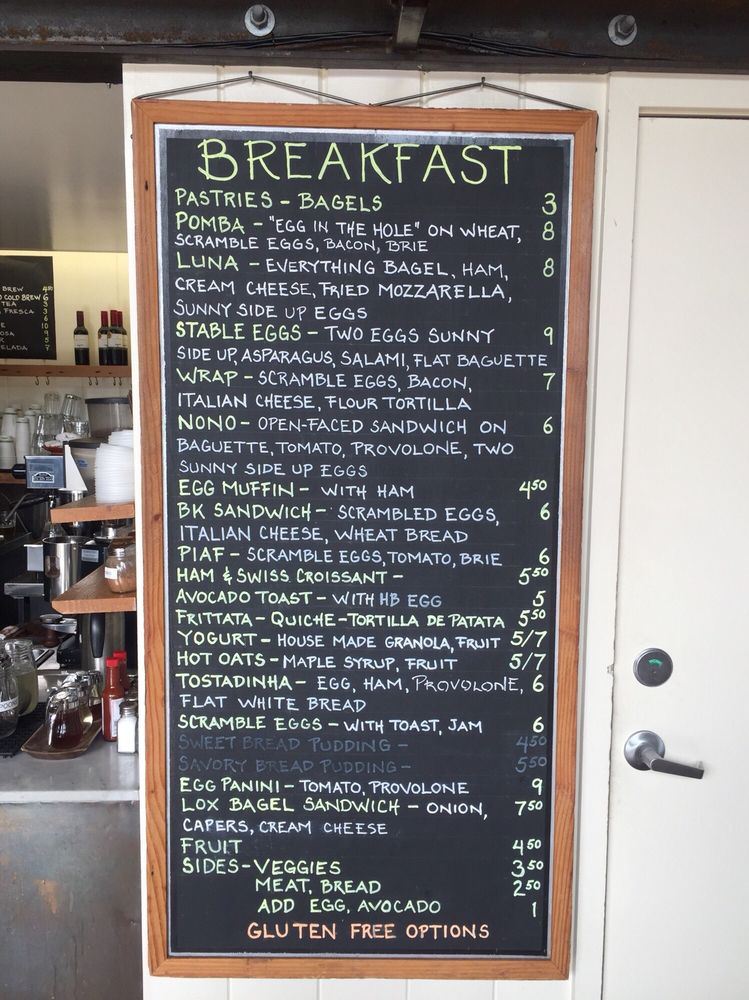 BREAKFAST
PASTRIES - BAGELS 3
POMBA - "EGG IN THE HOLE" ON WHEAT, 8
SCRAMBLE EGGS, BACON, BRIE
LUNA - EVERYTHING BAGEL, HAM, 8
CREAM CHEESE, FRIED MOZZARELLA,
SUNNY SIDE UP EGGS
STABLE EGGS - TWO EGGS SUNNY 9
SIDE UP, ASPARAGUS, SALAMI, FLAT BAGUETTE
WRAP - SCRAMBLE EGGS, BACON, 7
ITALIAN CHEESE, FLOUR TORTILLA
NONO - OPEN-FACED SANDWICH ON 6
BAGUETTE, TOMATO, PROVOLONE, TWO
SUNNY SIDE UP EGGS
EGG MUFFIN - WITH HAM 450
BK SANDWICH - SCRAMBLED EGGS, 6
ITALIAN CHEESE, WHEAT BREAD
PIAF - SCRAMBLE EGGS, TOMATO, BRIE 6
HAM & SWISS CROISSANT - 550
AVOCADO TOAST - WITH HB EGG 5
FRITTATA - QUICHE - TORTILLA DE PATATA 550
YOGURT - HOUSE MADE GRANOLA, FRUIT 5/7
HOT OATS - MAPLE SYRUP, FRUIT 5/7
TOSTADINHA - EGG, HAM, PROVOLONE, 6
FLAT WHITE BREAD
SCRAMBLE EGGS - WITH TOAST, JAM 6
SWEET BREAD PUDDING - 450
SAVORY BREAD PUDDING - 550
EGG PANINI - TOMATO, PROVOLONE 9
LOX BAGEL SANDWICH - ONION, 750
CAPERS, CREAM CHEESE
FRUIT 450
SIDES - VEGGIES 350
MEAT, BREAD 250
ADD EGG, AVOCADO 1
GLUTEN FREE OPTIONS
BREW 450
COLD BREW 6
TEA 3
FRESCA 3
6
10
9
5
7